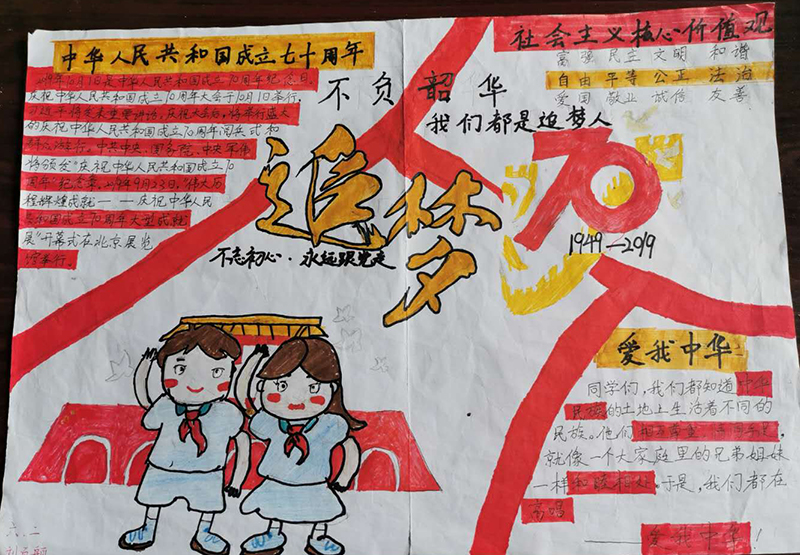 中华人民共和国成立七十周年
2019年10月1日是中华人民共和国成立70周年纪念日。
庆祝中华人民共和国成立70周年大会于10月1日举行。
习近平将发表重要讲话，庆祝大会后，将举行盛大
的庆祝中华人民共和国成立70周年阅兵式和
群众游行。中共中央、国务院、中央军委
将颁发“庆祝中华人民共和国成立70
周年”纪念章。2019年9月23日，“伟大历
程辉煌成就——庆祝中华人民
共和国成立70周年大型成就
展”开幕式在北京展览
馆举行。
社会主义核心价值观
富强 民主 文明 和谐
自由 平等 公正 法治
爱国 敬业 诚信 友善
不负韶华
我们都是追梦人
追梦
不忘初心·永远跟党走
70
1949—2019
爱我中华
同学们，我们都知道中华
民族的土地上生活着不同的
民族。他们
就像一个大家庭里的兄弟姐妹
一样和睦相处。于是，我们都在
高唱
——爱我中华！
六.二